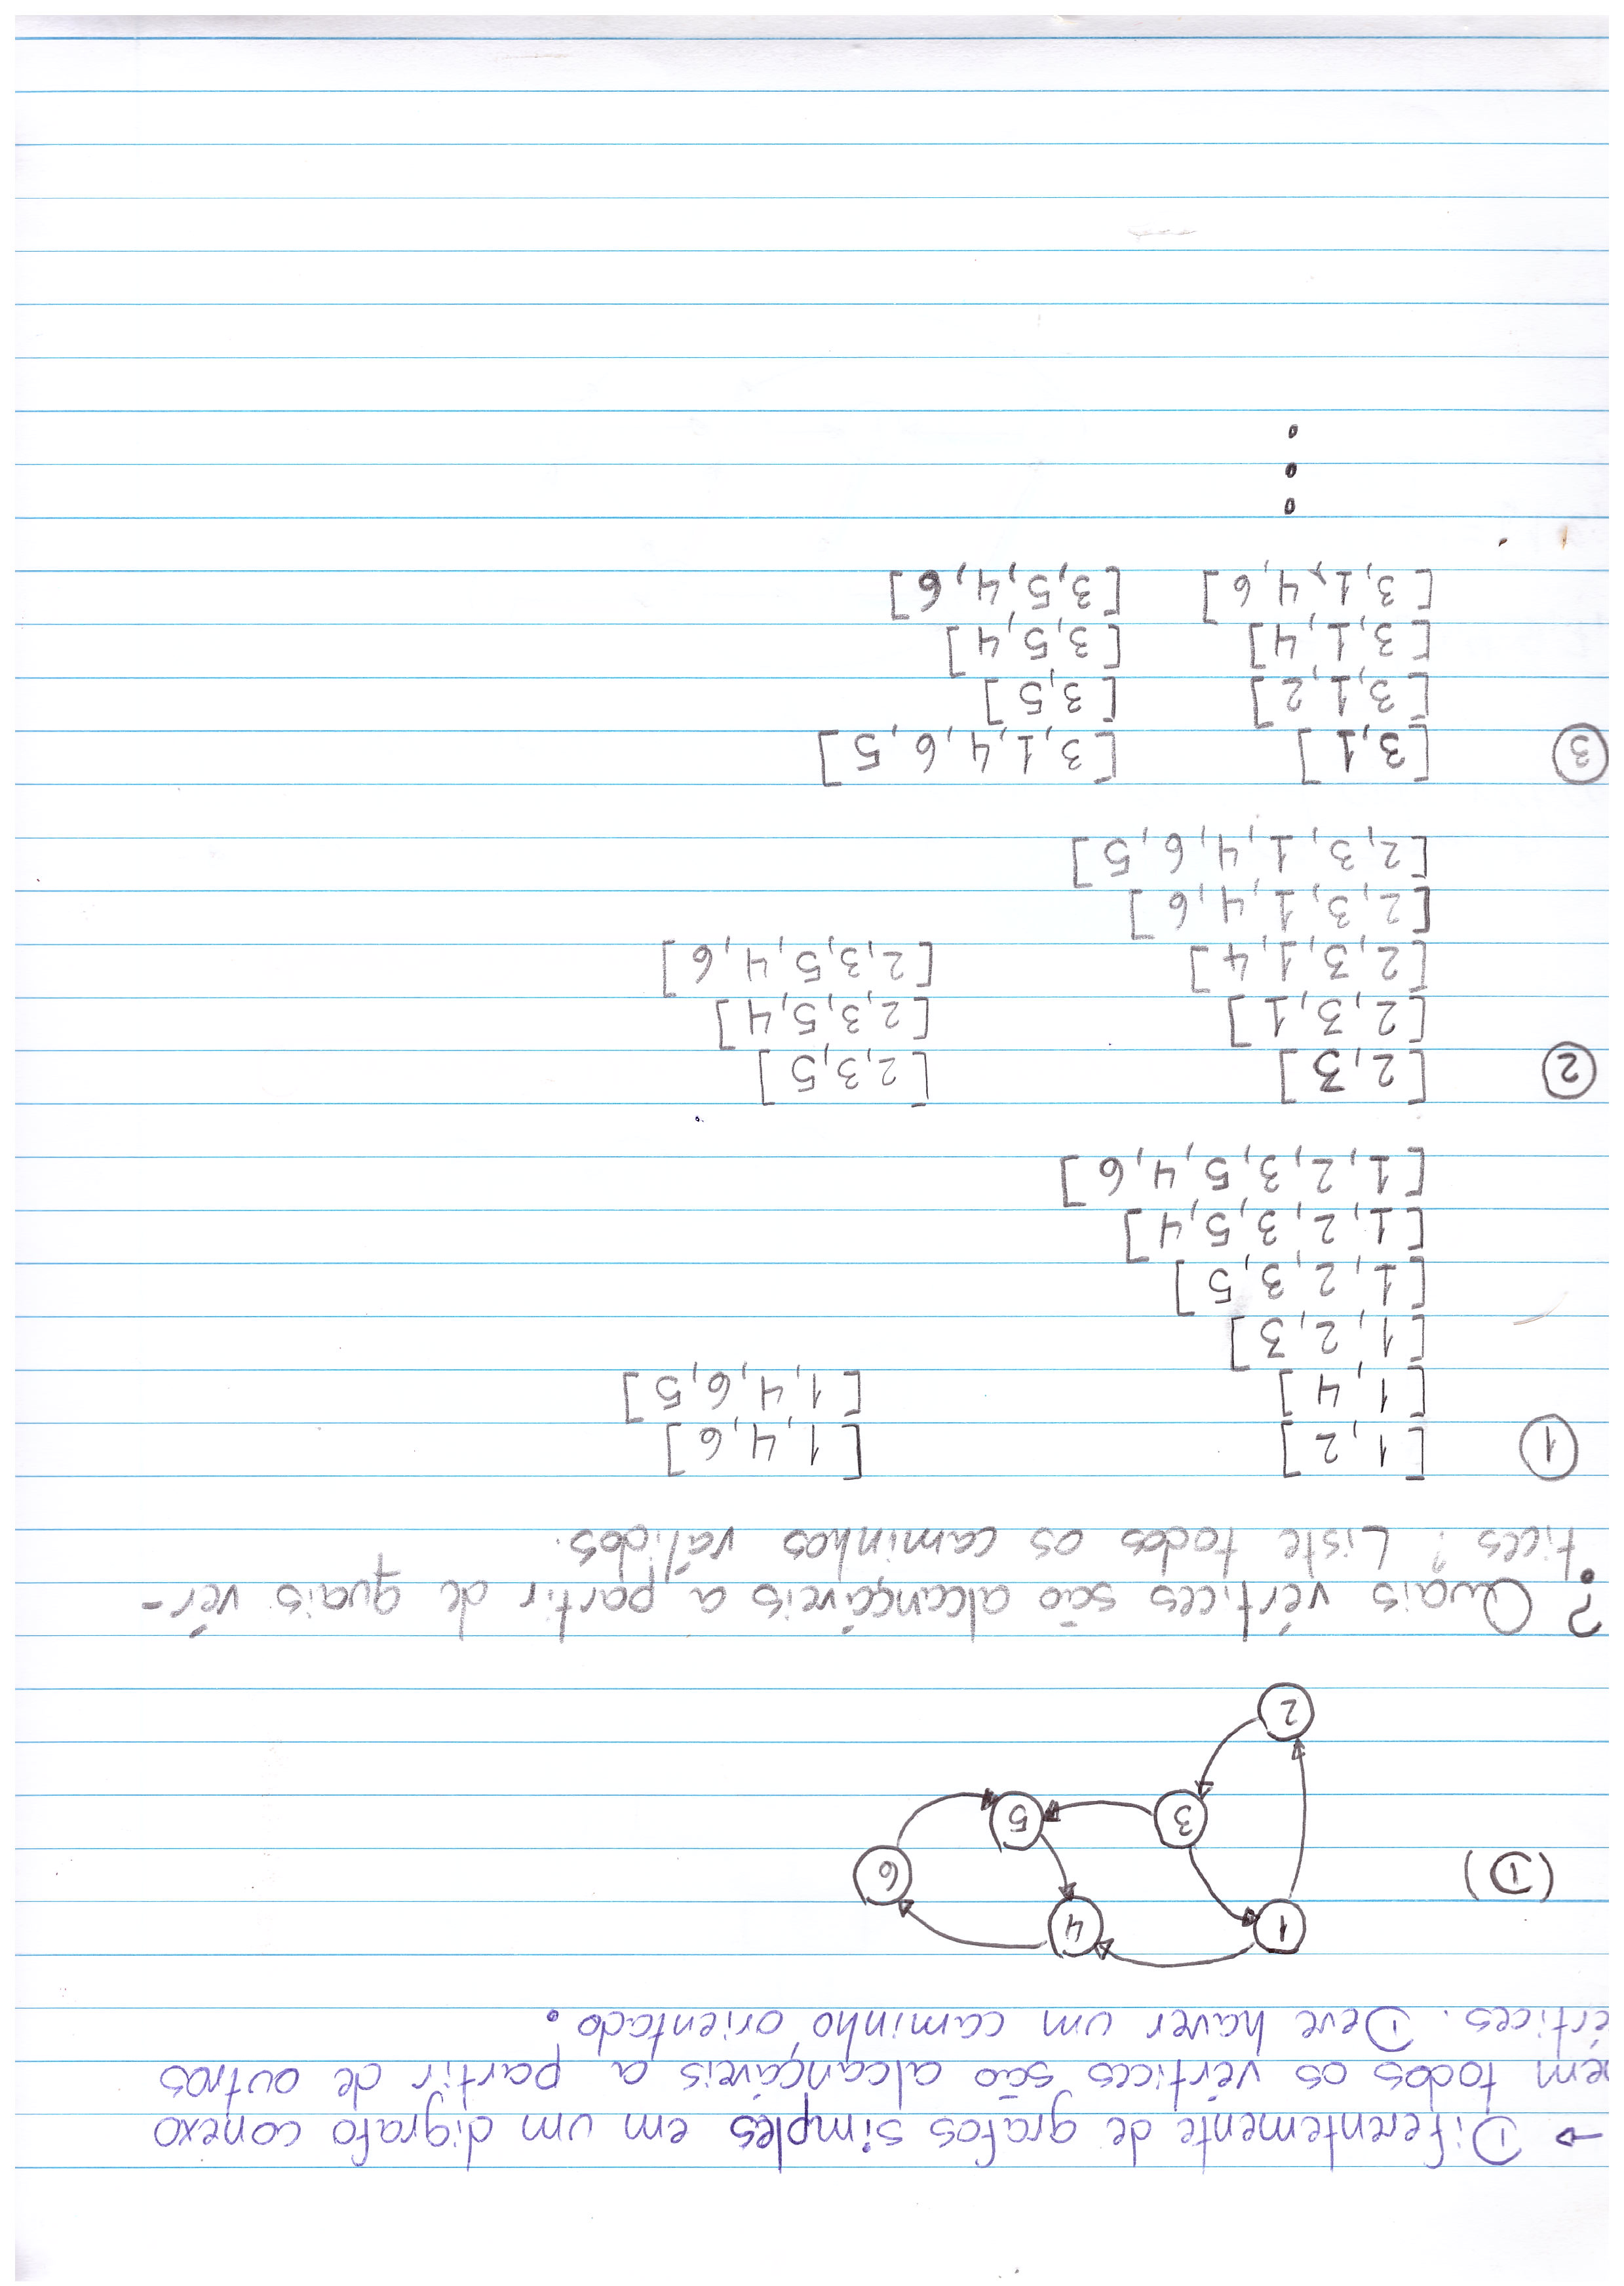 → Diferentemente de grafos simples em um digrafo conexo
em todos os vértices são alcançáveis a partir de outros
értices. Deve haver um caminho orientado.
1 4
(D) 6
3 5
2
? Quais vértices são alcançáveis a partir de quais vér-
tices? Liste todos os caminhos válidos.
1 [1,2] [1,4,6]
[1,4] [1,4,6,5]
[1,2,3]
[1,2,3,5]
[1,2,3,5,4]
[1,2,3,5,4,6]
2 [2,3] [2,3,5]
[2,3,1] [2,3,5,4]
[2,3,1,4] [2,3,5,4,6]
[2,3,1,4,6]
[2,3,1,4,6,5]
3 [3,1] [3,1,4,6,5]
[3,1,2] [3,5]
[3,1,4] [3,5,4]
[3,1,4,6] [3,5,4,6]